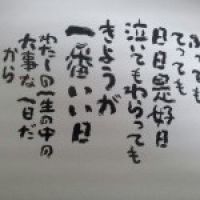 ふっても
てっても
日日是好日
泣いてもわらっても
きょうが
一番いい日
わたしの一生の中の
大事な一日だ
から